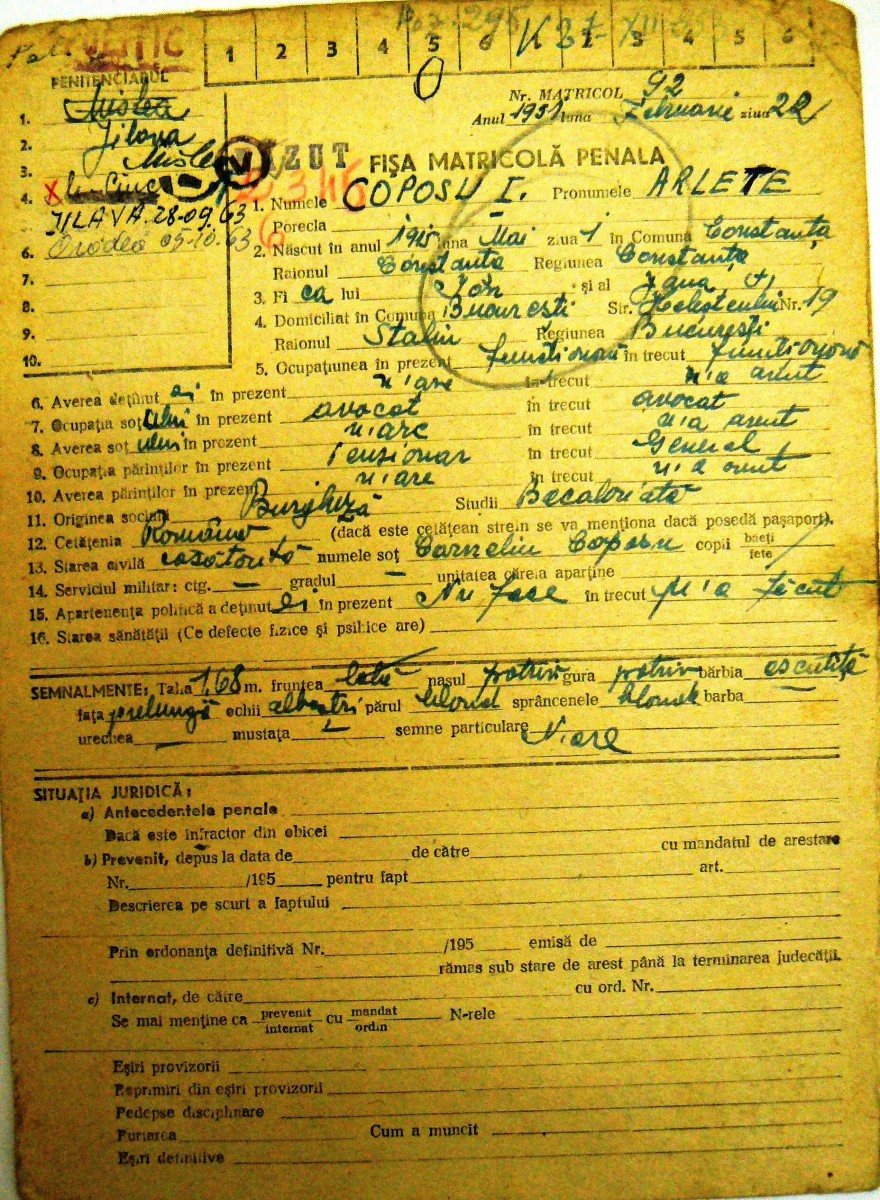 POLITIC
1 2 3 4 5 6 1 2 3 4 5 6
PENITENCIARUL
Nr. MATRICOL 92
Anul 1951 luna Februarie ziua 22
1. Mislea
2. Jilava
3. Mislea
4.
VĂZUT
FIȘA MATRICOLĂ PENALA
JILAVA 28-09-63
6. Oradea 05-10.63
7.
8.
9.
10.
1. Numele COPOSU I. Pronumele ARLETE
Porecla —
2. Născut în anul 1915 luna Mai ziua 1 în Comuna Constanța
Raionul Constanta Regiunea Constanța
3. Fi ca lui Ion și al
4. Domiciliat în Comuna București Str. Nr. 19
Raionul Stalin Regiunea București
5. Ocupațiunea în prezent functionară în trecut functionară
6. Averea deținut ei în prezent n'are în trecut n'a avut
7. Ocupația soțului în prezent avocat în trecut avocat
8. Averea soțului în prezent n'are în trecut n'a avut
9. Ocupația părinților în prezent Pensionar în trecut General
10. Averea părinților în prezent n'are în trecut n'a avut
11. Originea socială Burgheză Studii Bacaloriată
12. Cetățenia Română (dacă este cetățean strein se va menționa dacă posedă pașaport).
13. Starea civilă casătorită numele soț Corneliu Coposu copii baeți fete
14. Serviciul militar: ctg. — gradul — unitatea căreia aparține
15. Apartenența politică a deținut ei în prezent Nu face în trecut N'a făcut
16. Starea sănătății (Ce defecte fizice și psihice are)
SEMNALMENTE: Talia 1,68 m. fruntea lată nasul potriv gura potriv bărbia ascuțită
fața prelungă ochii albaștri părul blond sprâncenele blonde barba
urechea — mustața — semne particulare N'are
SITUAȚIA JURIDICĂ:
a) Antecedentele penale
Dacă este infractor din obicei
b) Prevenit, depus la data de de către cu mandatul de arestare
Nr. /195 pentru fapt art.
Descrierea pe scurt a faptului
Prin ordonanța definitivă Nr. /195 emisă de
rămas sub stare de arest până la terminarea judecății.
c) Internat, de către cu ord. Nr.
Se mai menține ca prevenit internat cu mandat ordin N-rele
Eșiri provizorii
Reprimiri din eșiri provizorii
Pedepse disciplinare
Purtarea Cum a muncit
Eșiri definitive